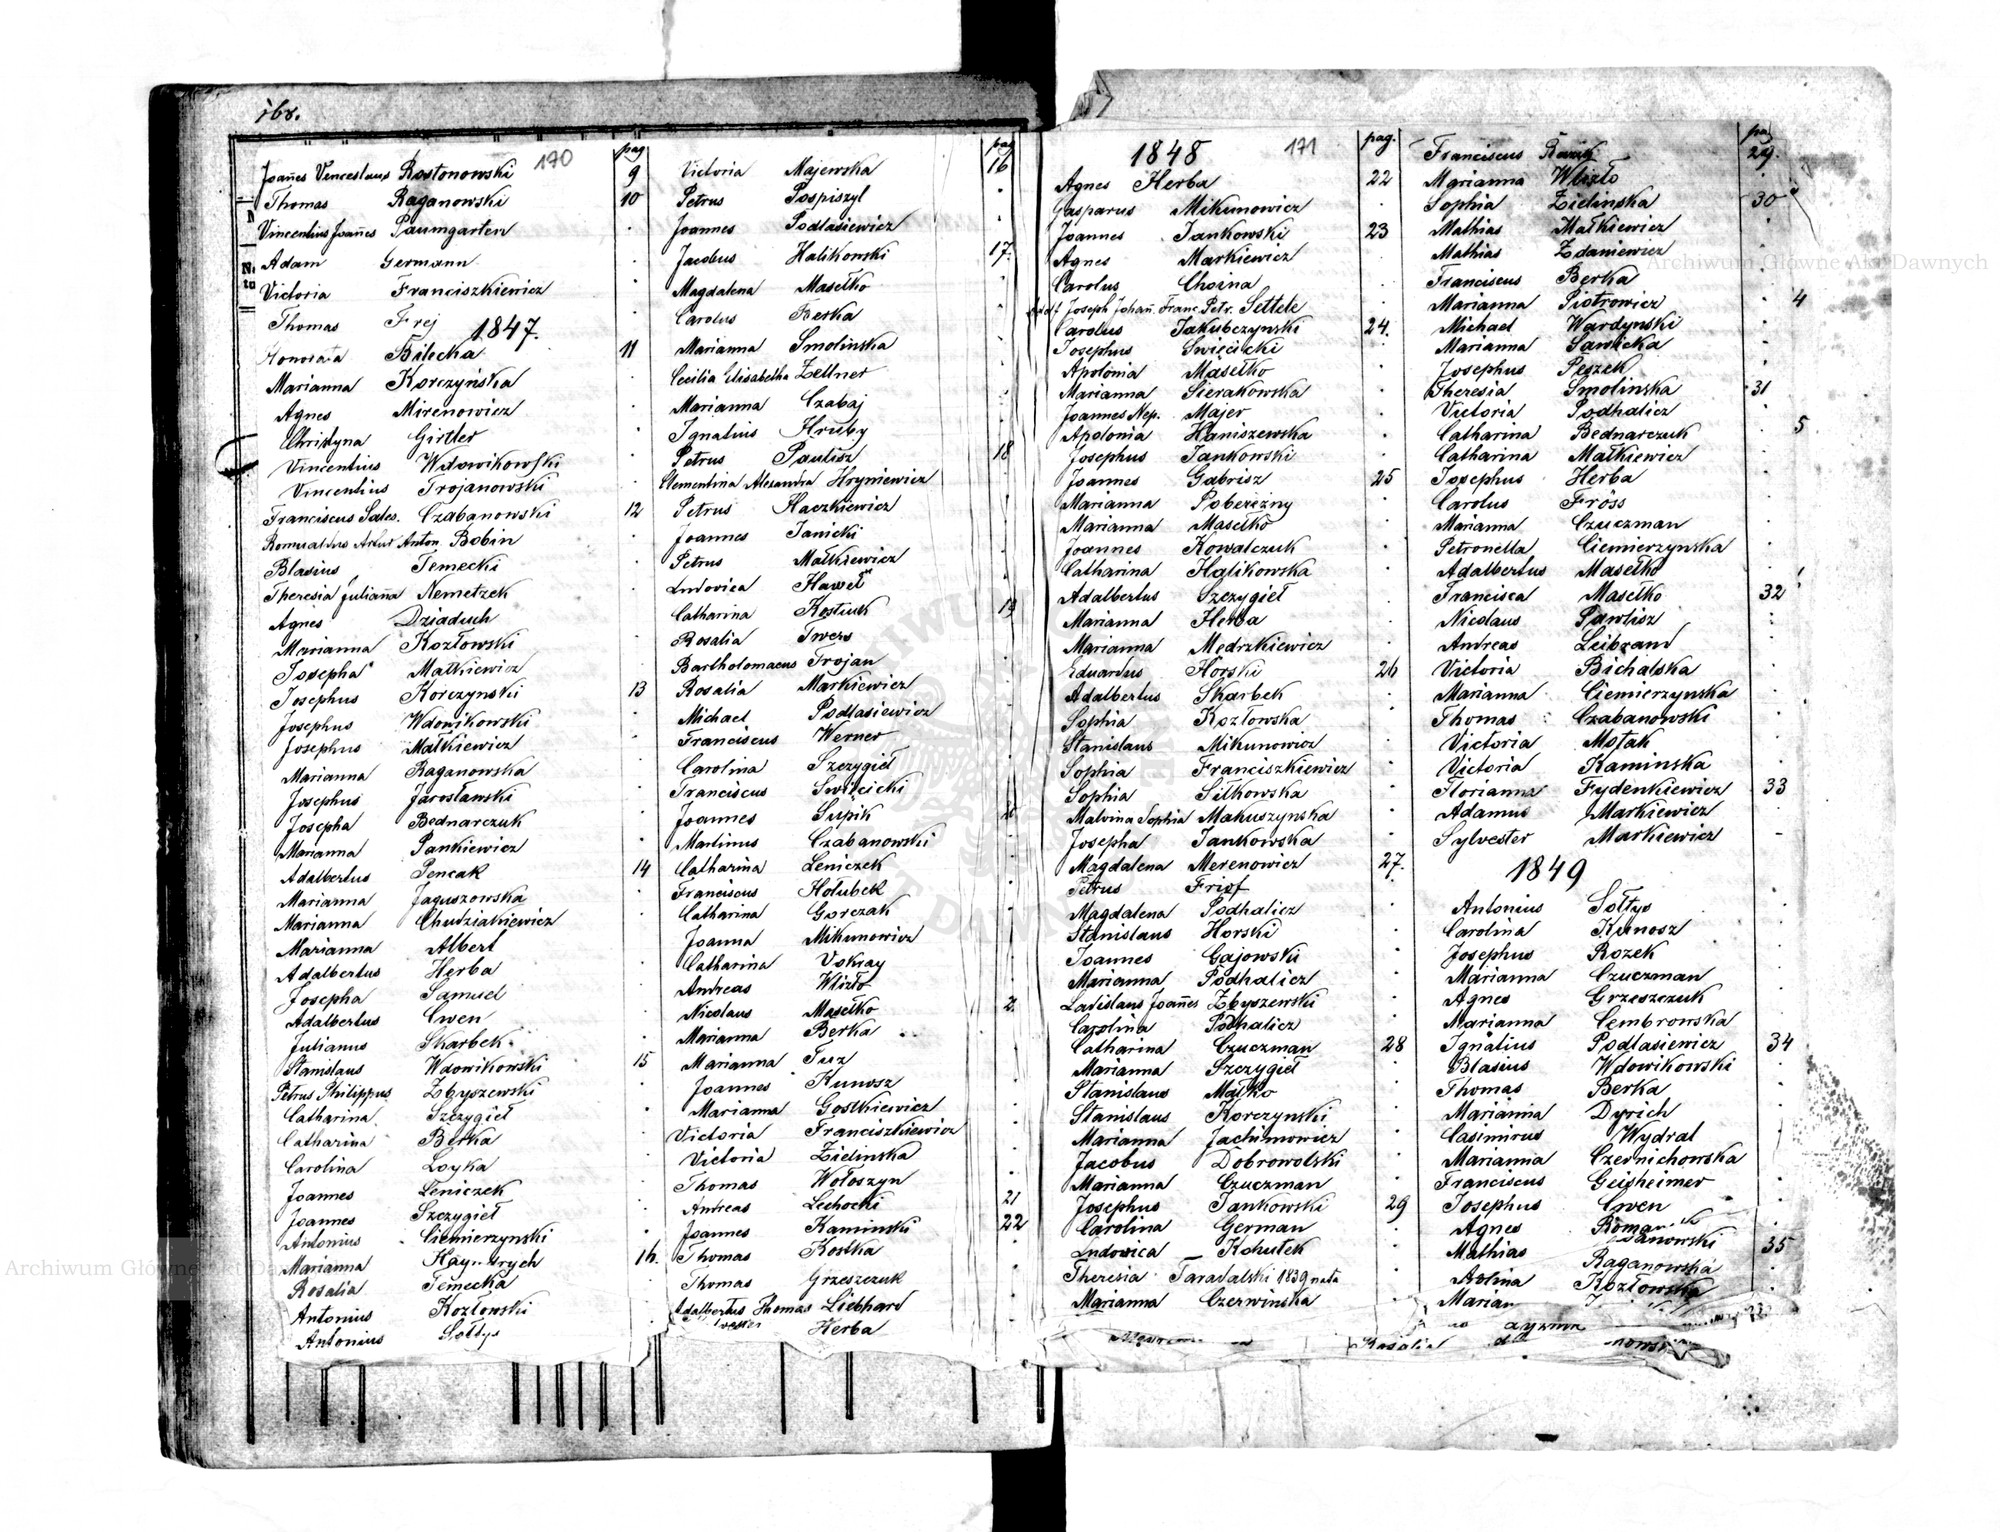 168.
170
pag
Joañes Venceslaus Rostonowski 9
Thomas Raganowski 10
Vincentius Joañes Paumgarten
Adam Germann
Victoria Franciszkiewicz
Thomas Frej
1847.
Honorata Bilecka 11
Marianna Korczyńska
Agnes Mirenowicz
Christyna Girtler
Vincentius Wdowikowski
Vincentius Trojanowski
Franciscus Sales. Czabanowski 12
Romualdus Artur Anton. Bobin
Blasius Temecki
Theresia Juliaña Nemetzek
Agnes Dziaduch
Marianna Kozłowski
Josepha Małkiewicz
Josephus Korczynski 13
Josephus Wdowikowski
Josephus Małkiewicz
Marianna Raganowska
Josephus Jarosławski
Josepha Bednarczuk
Marianna Pankiewicz
Adalbertus Pencak 14
Marianna Jaguszowska
Marianna Chudziakiewicz
Marianna Albert
Adalbertus Herba
Josepha Samuel
Adalbertus Cwen
Julianus Skarbek
Stanislaus Wdowikowski 15
Petrus Philippus Zbyszewski
Catharina Szczygieł
Catharina Berka
Carolina Loyka
Joannes Leniczek
Joannes Szczygieł
Antonius Ciemierzynski
Marianna 16.
Rosalia Temecka
Antonius Kozłowski
Antonius Sołtys
pag
Victoria Majewska 16
Petrus Pospiszyl
Joannes Podlasiewicz
Jacobus Halikowski 17.
Magdalena Masełko
Carolus Berka
Marianna Smolinska
Cecilia Elisabetha Zellner
Marianna Czabaj
Ignatius Hruby
Petrus Paulisz 18
Clementina Alexandra Hryniewicz
Petrus Haczkiewicz
Joannes Janicki
Petrus Małkiewicz
Ludovica Haweł
Catharina Kostiuk 19
Rosalia Twers
Bartholomaeus Trojan
Rosalia Markiewicz
Michael Podlasiewicz
Franciscus Werner
Carolina Szczygieł
Franciscus Swiécicki
Joannes Supik
Martinus Czabanowski
Catharina Leniczek
Franciscus Holubek
Catharina Gorczak
Joanna Mikunowicz
Catharina Vokray
Andreas Wlizło
Nicolaus Masełko
Marianna Berka
Marianna Tuz
Joannes Kunosz
Marianna Gostkiewicz
Victoria Franciszkiewicz
Victoria Zielinska
Thomas Wołoszyn
Andreas Lechocki 21
Joannes Kaminski 22
Thomas Kostka
Thomas Grzeszczuk
Adalbertus Thomas Liebhard
Herba
1848
171
pag.
Agnes Herba 22
Gasparus Mikunowicz
Joannes Jankowski 23
Agnes Markiewicz
Carolus Choina
Joseph Johañ. Franc. Petr. Settele
Carolus Jakubczynski 24.
Josephus Swięcicki
Apolonia Masełko
Marianna Sierakowska
Joannes Nep. Majer
Apolonia Haniszewska
Josephus Jankowski
Joannes Gabrisz 25
Marianna Pobereżny
Marianna Masełko
Joannes Kowalczuk
Catharina Halikowska
Adalbertus Szczygieł
Marianna Herba
Marianna Mędrzkiewicz
Eduardus Horski 26
Adalbertus Skarbek
Sophia Kozłowska
Stanislaus Mikunowicz
Sophia Franciszkiewicz
Sophia Sitkowska
Malvina Sophia Makuszynska
Josepha Jankowska
Magdalena Merenowicz 27.
Petrus Friof
Magdalena Podhalicz
Stanislaus Horski
Joannes Gajowski
Marianna Podhalicz
Ladislaus Joañes Zbyszewski
Carolina Podhalicz
Catharina Czuczman 28
Marianna Szczygieł
Stanislaus Małko
Stanislaus Korczynski
Marianna Jachimowicz
Jacobus Dobrowolski
Marianna Czuczman
Josephus Jankowski 29
Carolina German
Ludowica Kohutek
Theresia Taradalski 1839 nata
Marianna Czerwinska
pag
Franciscus 29.
Marianna Wlizło
Sophia Zielinska 30
Mathias Małkiewicz
Mathias Zdaniewicz
Franciscus Berka
Marianna Piotrowicz 4
Michael Wardynski
Marianna Sawicka
Josephus Peszek
Theresia Smolinska 31
Victoria Podhalicz
Catharina Bednarczuk 5
Catharina Małkiewicz
Josephus Herba
Carolus Fröss
Marianna Czuczman
Petronella Ciemierzynska
Adalbertus Masełko
Francisca Masełko 32
Nicolaus Pawlisz
Andreas Leibrand
Victoria Bichalska
Marianna Ciemierzynska
Thomas Czabanowski
Victoria Motak
Victoria Kaminska
Florianna Fydenkiewicz 33
Adamus Markiewicz
Sylvester Markiewicz
1849
Antonius Sołtys
Carolina Kunosz
Josephus Rozek
Marianna Czuczman
Agnes Grzeszczuk
Marianna Cembrowska
Ignatius Podlasiewicz 34
Blasius Wdowikowski
Thomas Berka
Marianna Dyrich
Casimirus Wydral
Marianna Czernichowska
Franciscus Geisheimer
Josephus Cwen
Agnes
Mathias 35
Raganowska
Kozłowska
Rosalia
Archiwum Główne Akt Dawnych
Archiwum Główne Akt Dawnych